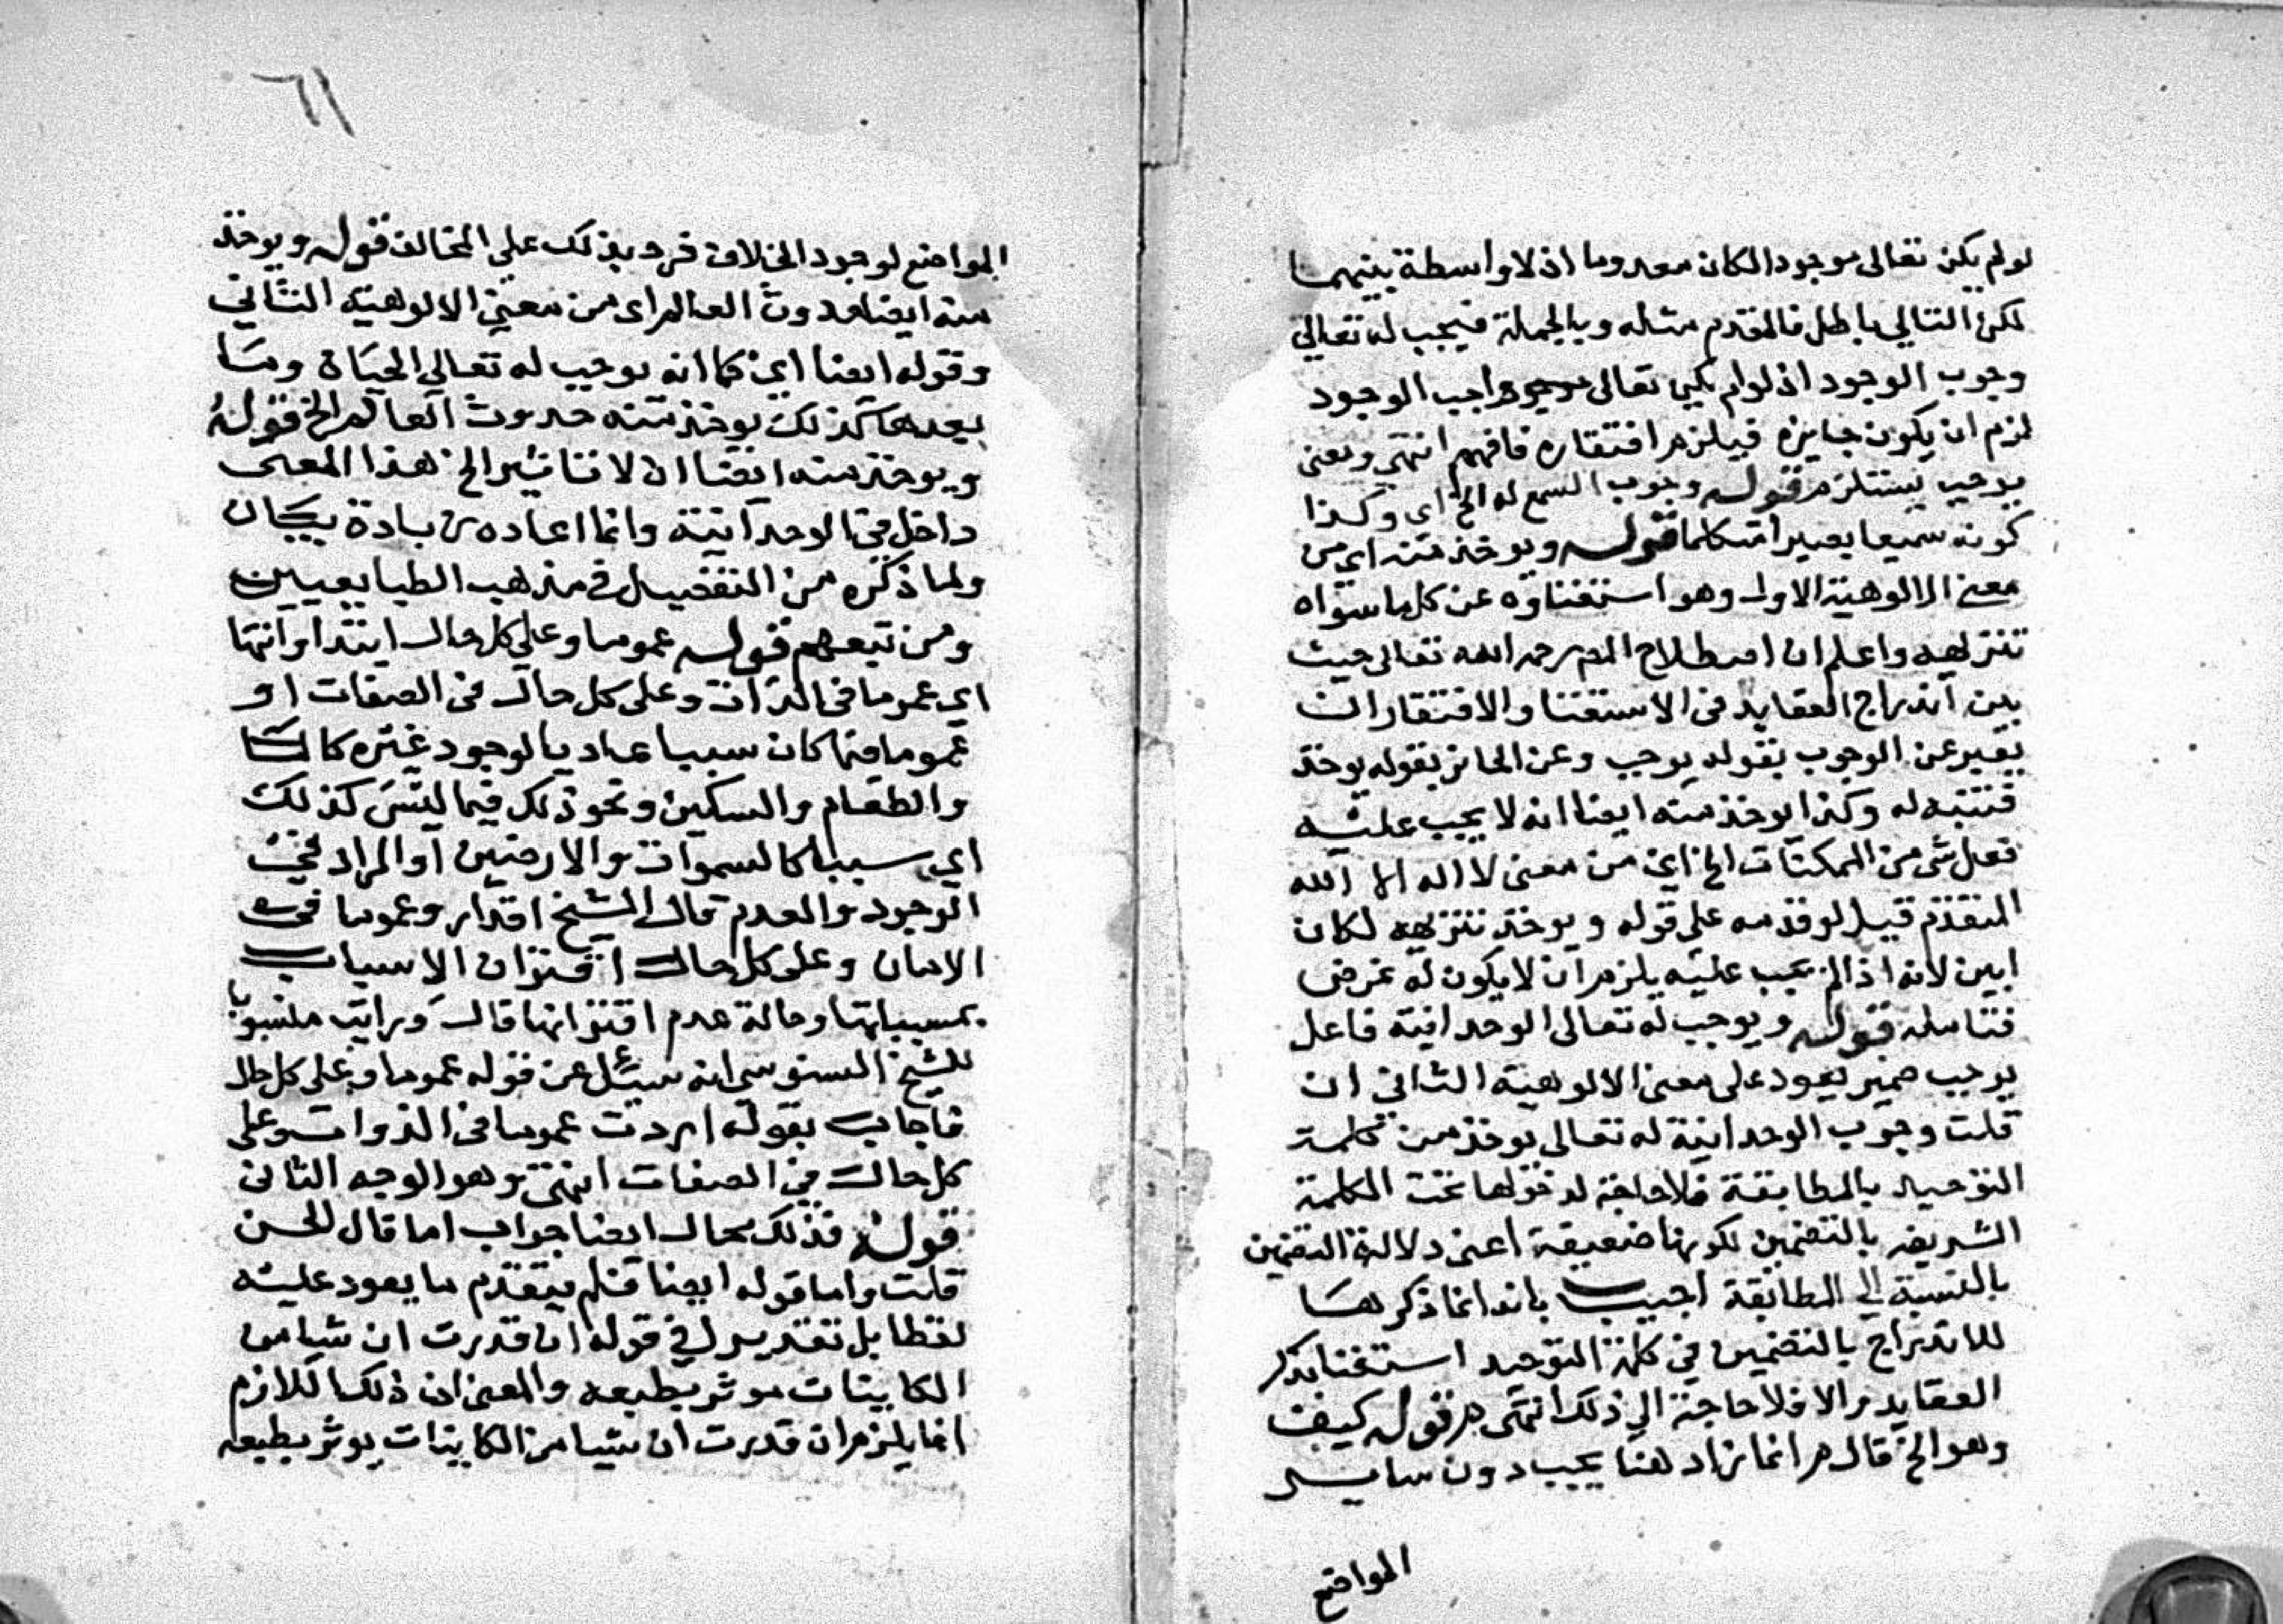 لو لم يكن تعالى موجودا لكان معدوما اذ لا واسطة بينهما
لكن التالي باطل فالمقدم مثله وبالجملة فيجب له تعالى
وجوب الوجود اذ لو لم يكن تعالى واجب الوجود
لزم ان يكون جايزه فيلزم افتقاره فافهم انتهى ومعنى
يوجب يستلزم قوله وجوب السمع له الخ اى وكذا
كونه سميعا بصيرا متكلما قوله ويوخذ منه اى من
معنى الالوهية الاول وهو استغناوه عن كل ما سواه
تنزيهه واعلم ان اصطلاح المص رحمه الله تعالى حيث
بين اندراج العقايد في الاستغنا والافتقار ان
يعبر عن الوجوب بقوله يوجب وعن الجايز بقوله يوخذ
فتنبه له وكذا يوخذ منه ايضا انه لا يجب عليه
فعل شى من الممكنات الخ اى من معنى لا اله الا الله
المتقدم قيل لو قدمه على قوله ويوخذ تنزيهه لكان
ابين لانه اذا لم يجب عليه يلزم ان لا يكون له غرض
فتامله قوله ويوجب له تعالى الوحدانية فاعل
يوجب ضمير يعود على معنى الالوهية الثانى ان
قلت وجوب الوحدانية له تعالى يوخذ من كلمة
التوحيد بالمطابقة فلا حاجة لدخولها تحت الكلمة
الشريفه بالتضمين لكونها ضعيفة اعنى دلالة التضمين
بالنسبة الى المطابقة اجيب بانه انما ذكرها
للاندراج بالتضمين في كلمة التوحيد استغنا بذكر
العقايد والا فلا حاجة الى ذلك انتهى م قوله كيف
وهو الخ قال م انما زاد هنا يجب دون ساير
المواضع
٦١
المواضع لوجود الخلاف فرد بذلك على المخالف قوله ويوخذ
منه ايضا حدوث العالم اى من معنى الالوهية الثانى
وقوله ايضا اى كما انه يوجب له تعالى الحياة وما
بعدها كذلك يوخذ منه حدوث العالم الخ قوله
ويوخذ منه ايضا ان لا تاثير الخ هذا المعنى
داخل في الوحدانية وانما اعاده زيادة بيان
ولما ذكره من التفصيل في مذهب الطبايعيين
ومن تبعهم قوله عموما وعلى كل حال ابتدا وانتها
اى عموما في الذات وعلى كل حال في الصفات او
عموما فيما كان سببا عاديا لوجود غيره كالما
والطعام والسكين ونحو ذلك فيما ليس كذلك
اى سببا كالسموات والارضين او المراد في
الوجود والعدم قال الشيخ اقدار وعموما في
الازمان وعلى كل حال اقتران الاسباب
بمسبباتها وحالة عدم اقترانها قال ورايت منسوبا
للشيخ السنوسى انه سئل عن قوله عموما وعلى كل حال
فاجاب بقوله اردت عموما في الذوات وعلى
كل حال في الصفات انتهى وهو الوجه الثانى
قوله فذلك محال ايضا جواب اما قال الحسن
قلت واما قوله ايضا فلم يتقدم ما يعود عليه
لفظا بل تقدير في قوله ان قدرت ان شيا من
الكاينات موثر بطبعه والمعنى ان ذلك اللازم
انما يلزم ان قدرت ان شيا من الكاينات يوثر بطبعه